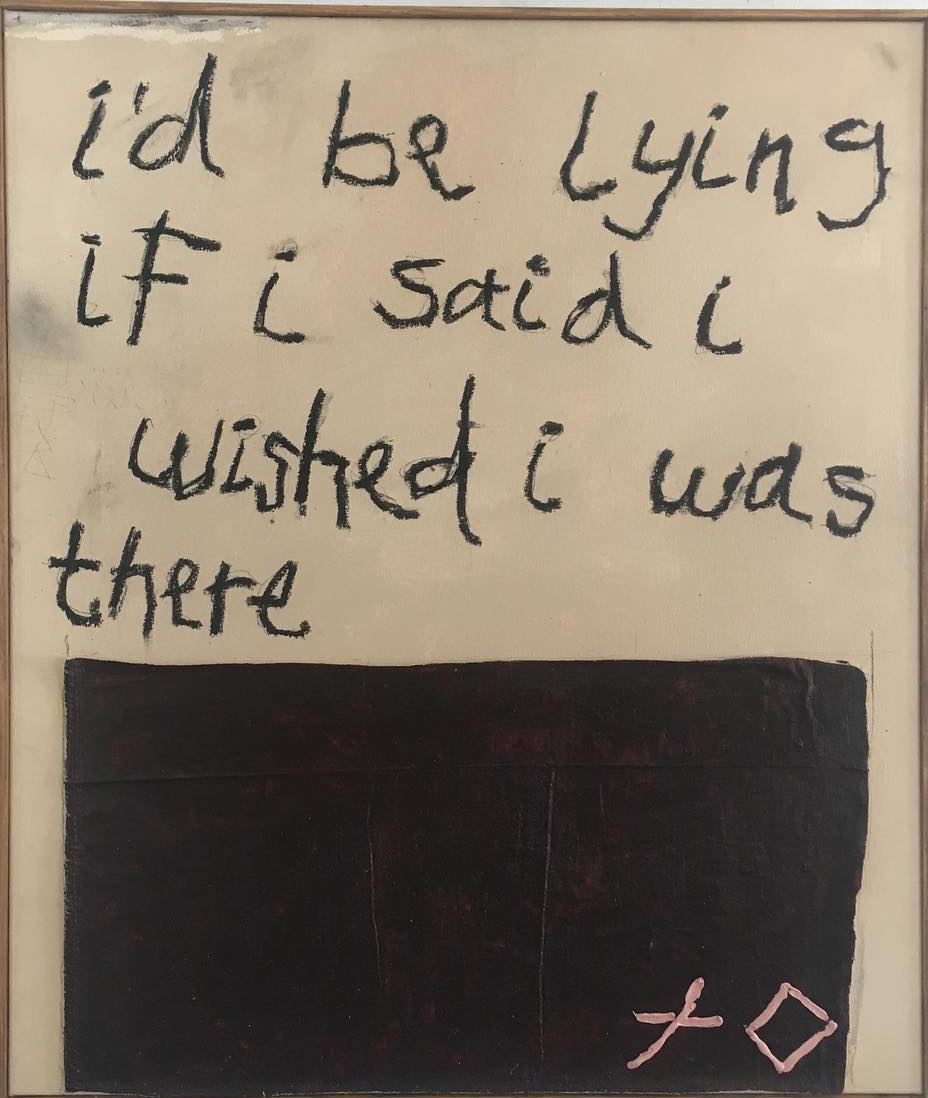 i'd be lying
if i said i
wished i was
there